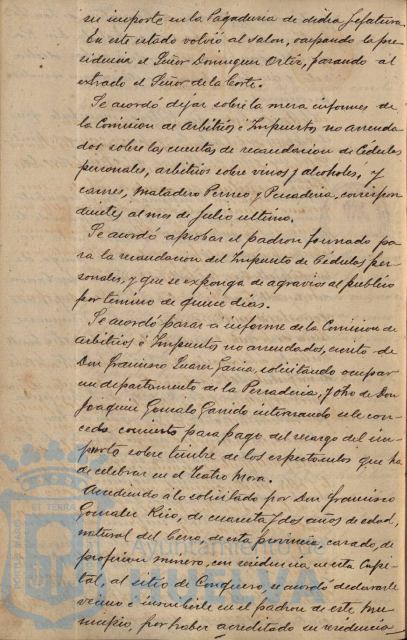 su importe en la Pagaduria de dicha Jefatura.
En este estado volvió al salon, ocupando la pre-
sidencia el Señor Dominguez Ortiz, pasando al
estrado el Señor de la Corte.
Se acordó dejar sobre la mesa informes de
la Comision de Arbitrios é Impuestos no arrenda-
dos sobre las cuentas de recaudacion de Cédulas
personales, arbitrios sobre vinos y alcoholes, y
carnes, Matadero Perneo y Pescaderia, correspon-
dientes al mes de Julio ultimo.
Se acordó aprobar el padron formado pa-
ra la recaudacion del Impuesto de Cédulas per-
sonales, y que se exponga de agravios al publico
por término de quince dias.
Se acordó pasar á informe de la Comision de
Arbitrios é Impuestos no arrendados, escrito de
Don Francisco Suarez Garcia, solicitando ocupar
un departamento de la Pescaderia, y otro de Don
Joaquin Gonzalo Garrido interesando se le con-
ceda concierto para pago del recargo del im-
puesto sobre timbre de los espectaculos que ha
de celebrar en el Teatro Mora.
Accediendo á lo solicitado por Don Francisco
Gonzalez Rico, de cuarenta y dos años de edad,
natural del Cerro, de esta provincia, casado, de
profesion minero, con residencia en esta Capi-
tal, al sitio de Conquero, se acordó declararle
vecino é inscribirle en el padron de este Mu-
nicipio, por haber acreditado su residencia